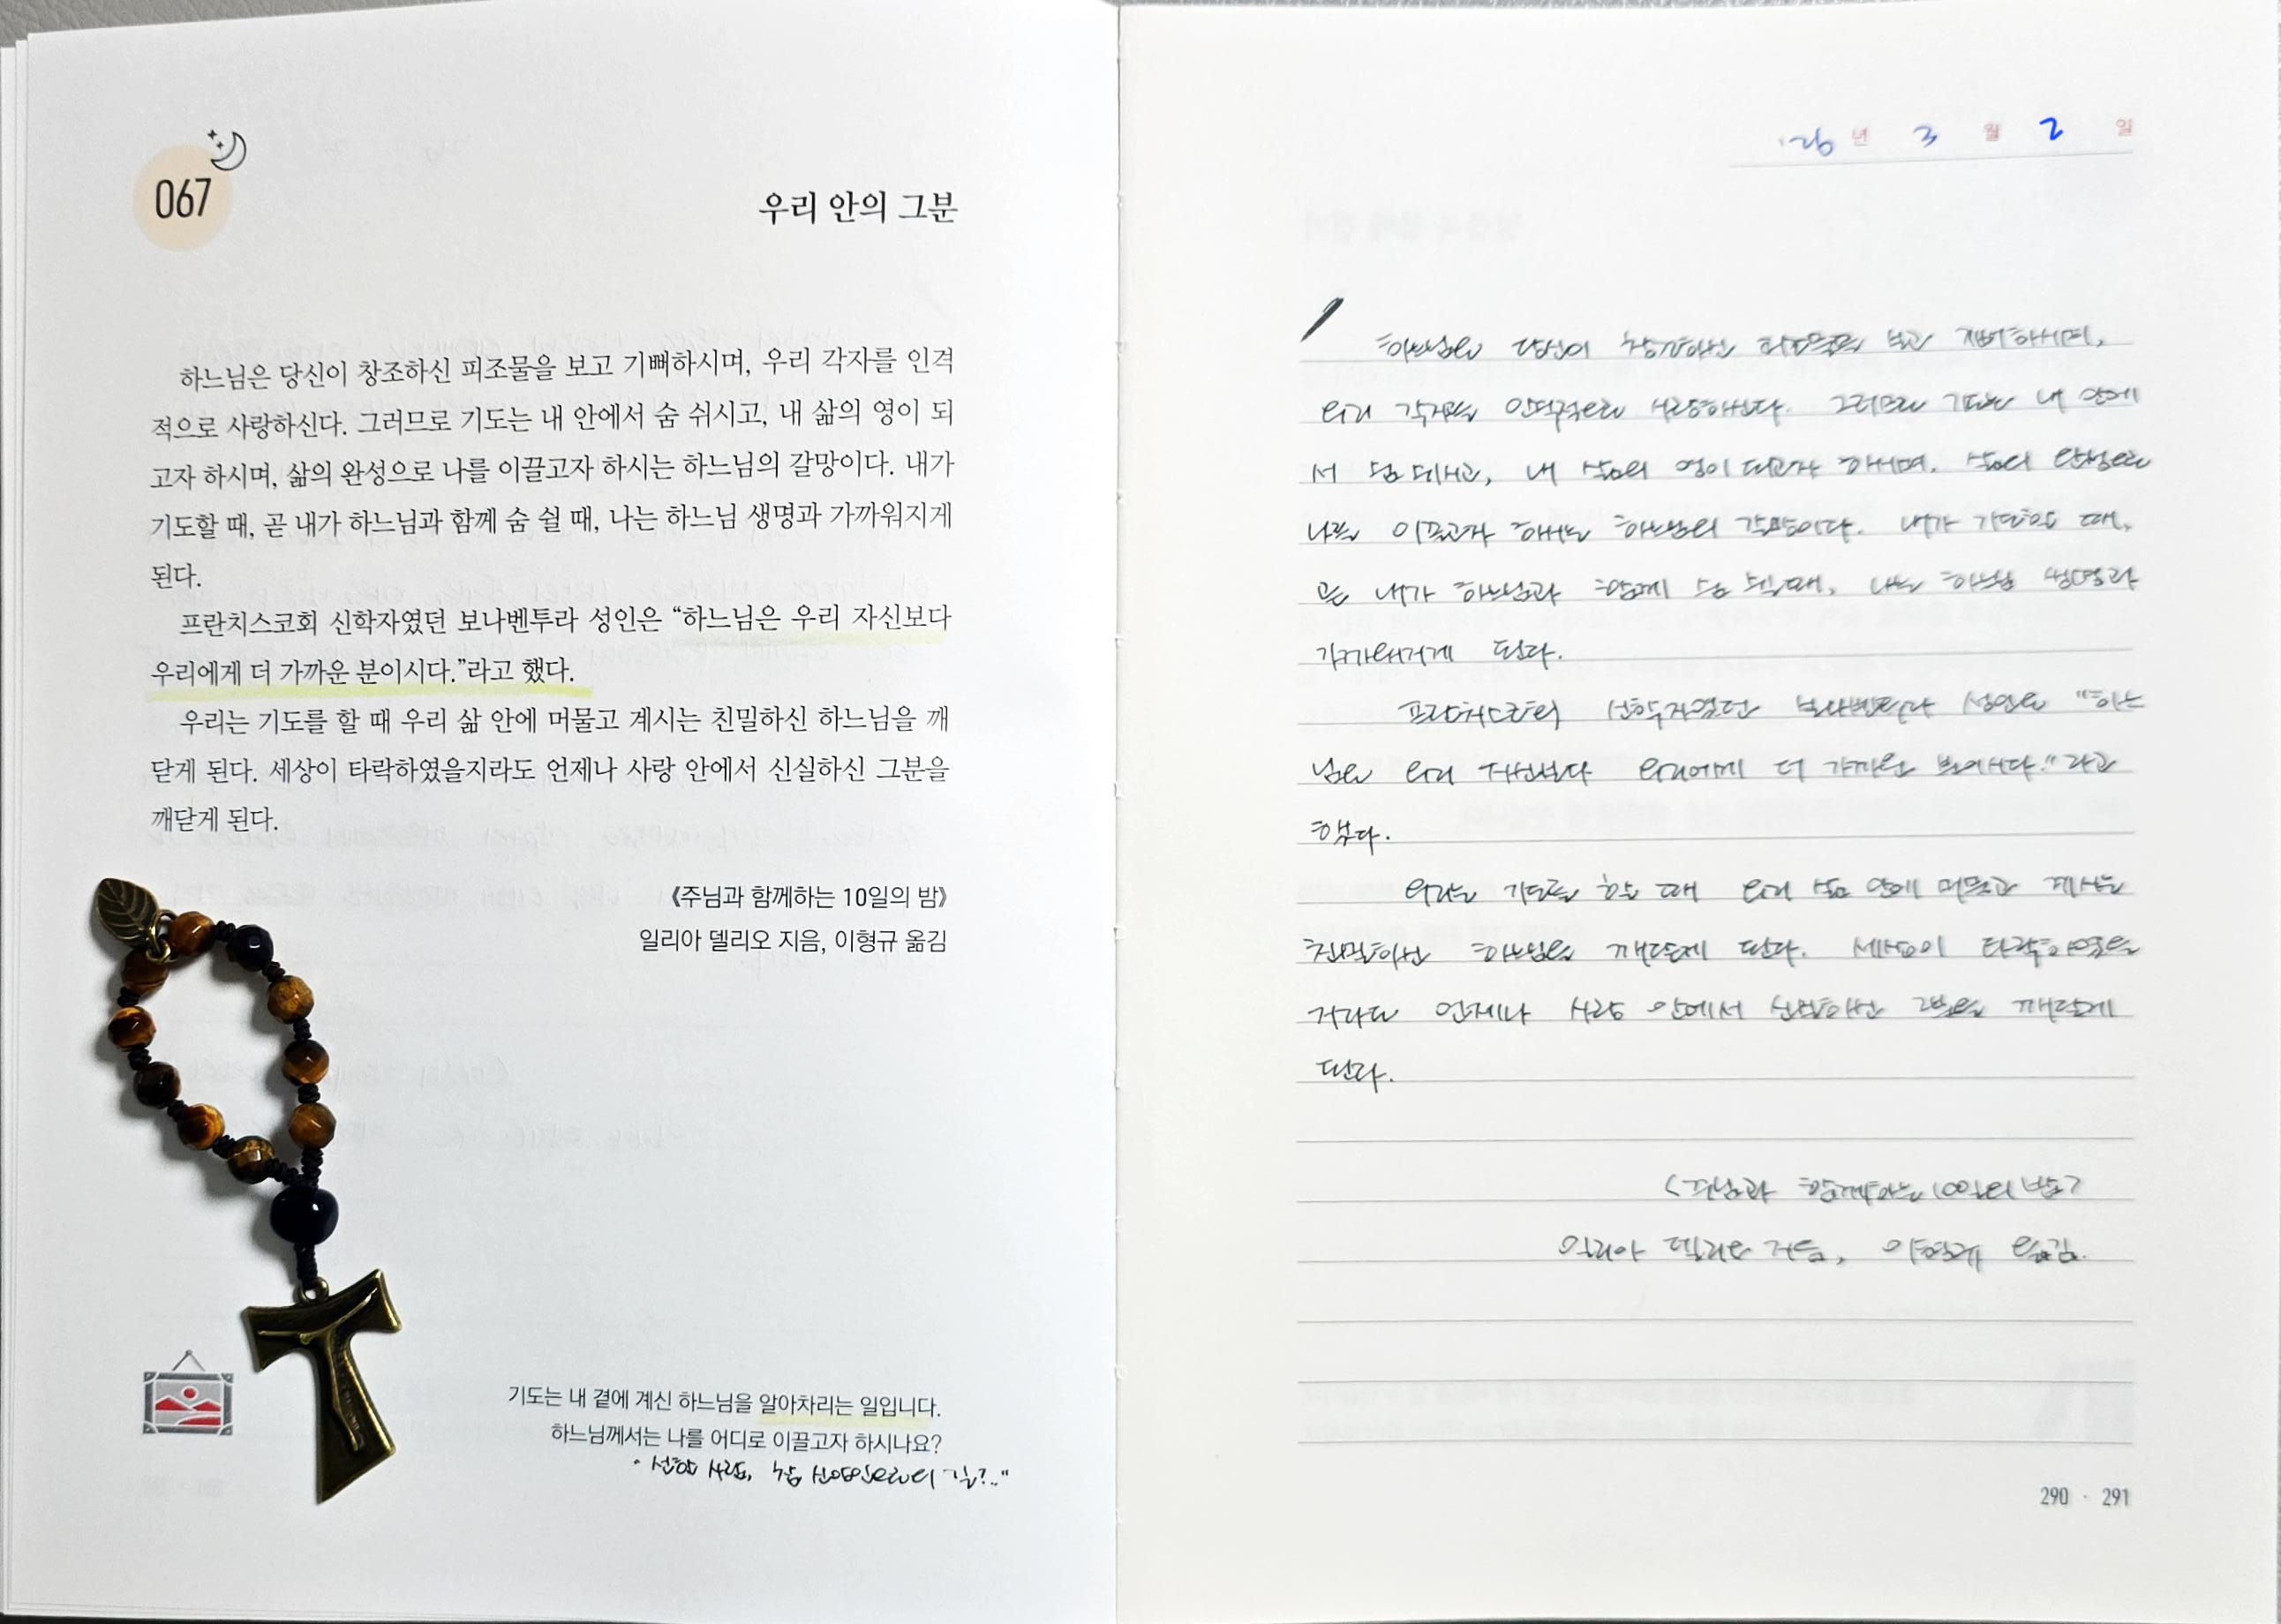 067
우리 안의 그분
하느님은 당신이 창조하신 피조물을 보고 기뻐하시며, 우리 각자를 인격
적으로 사랑하신다. 그러므로 기도는 내 안에서 숨 쉬시고, 내 삶의 영이 되
고자 하시며, 삶의 완성으로 나를 이끌고자 하시는 하느님의 갈망이다. 내가
기도할 때, 곧 내가 하느님과 함께 숨 쉴 때, 나는 하느님 생명과 가까워지게
된다.
프란치스코회 신학자였던 보나벤투라 성인은 “하느님은 우리 자신보다
우리에게 더 가까운 분이시다.”라고 했다.
우리는 기도를 할 때 우리 삶 안에 머물고 계시는 친밀하신 하느님을 깨
닫게 된다. 세상이 타락하였을지라도 언제나 사랑 안에서 신실하신 그분을
깨닫게 된다.
《주님과 함께하는 10일의 밤》
일리아 델리오 지음, 이형규 옮김
기도는 내 곁에 계신 하느님을 알아차리는 일입니다.
하느님께서는 나를 어디로 이끌고자 하시나요?
선한 사람, 참 신앙인으로의 길?.."
'26년 3월 2일
하느님은 당신이 창조하신 피조물을 보고 기뻐하시며,
우리 각자를 인격적으로 사랑하신다. 그러므로 기도는 내 안에
서 숨 쉬시고, 내 삶의 영이 되고자 하시며, 삶의 완성으로
나를 이끌고자 하시는 하느님의 갈망이다. 내가 기도할 때,
곧 내가 하느님과 함께 숨 쉴 때, 나는 하느님 생명과
가까워지게 된다.
프란치스코회 신학자였던 보나벤투라 성인은 "하느
님은 우리 자신보다 우리에게 더 가까운 분이시다."라고
했다.
우리는 기도를 할 때 우리 삶 안에 머물고 계시는
친밀하신 하느님을 깨닫게 된다. 세상이 타락하였을
지라도 언제나 사랑 안에서 신실하신 그분을 깨닫게
된다.
<주님과 함께하는 10일의 밤>
일리아 델리오 지음, 이형규 옮김.
290 · 291